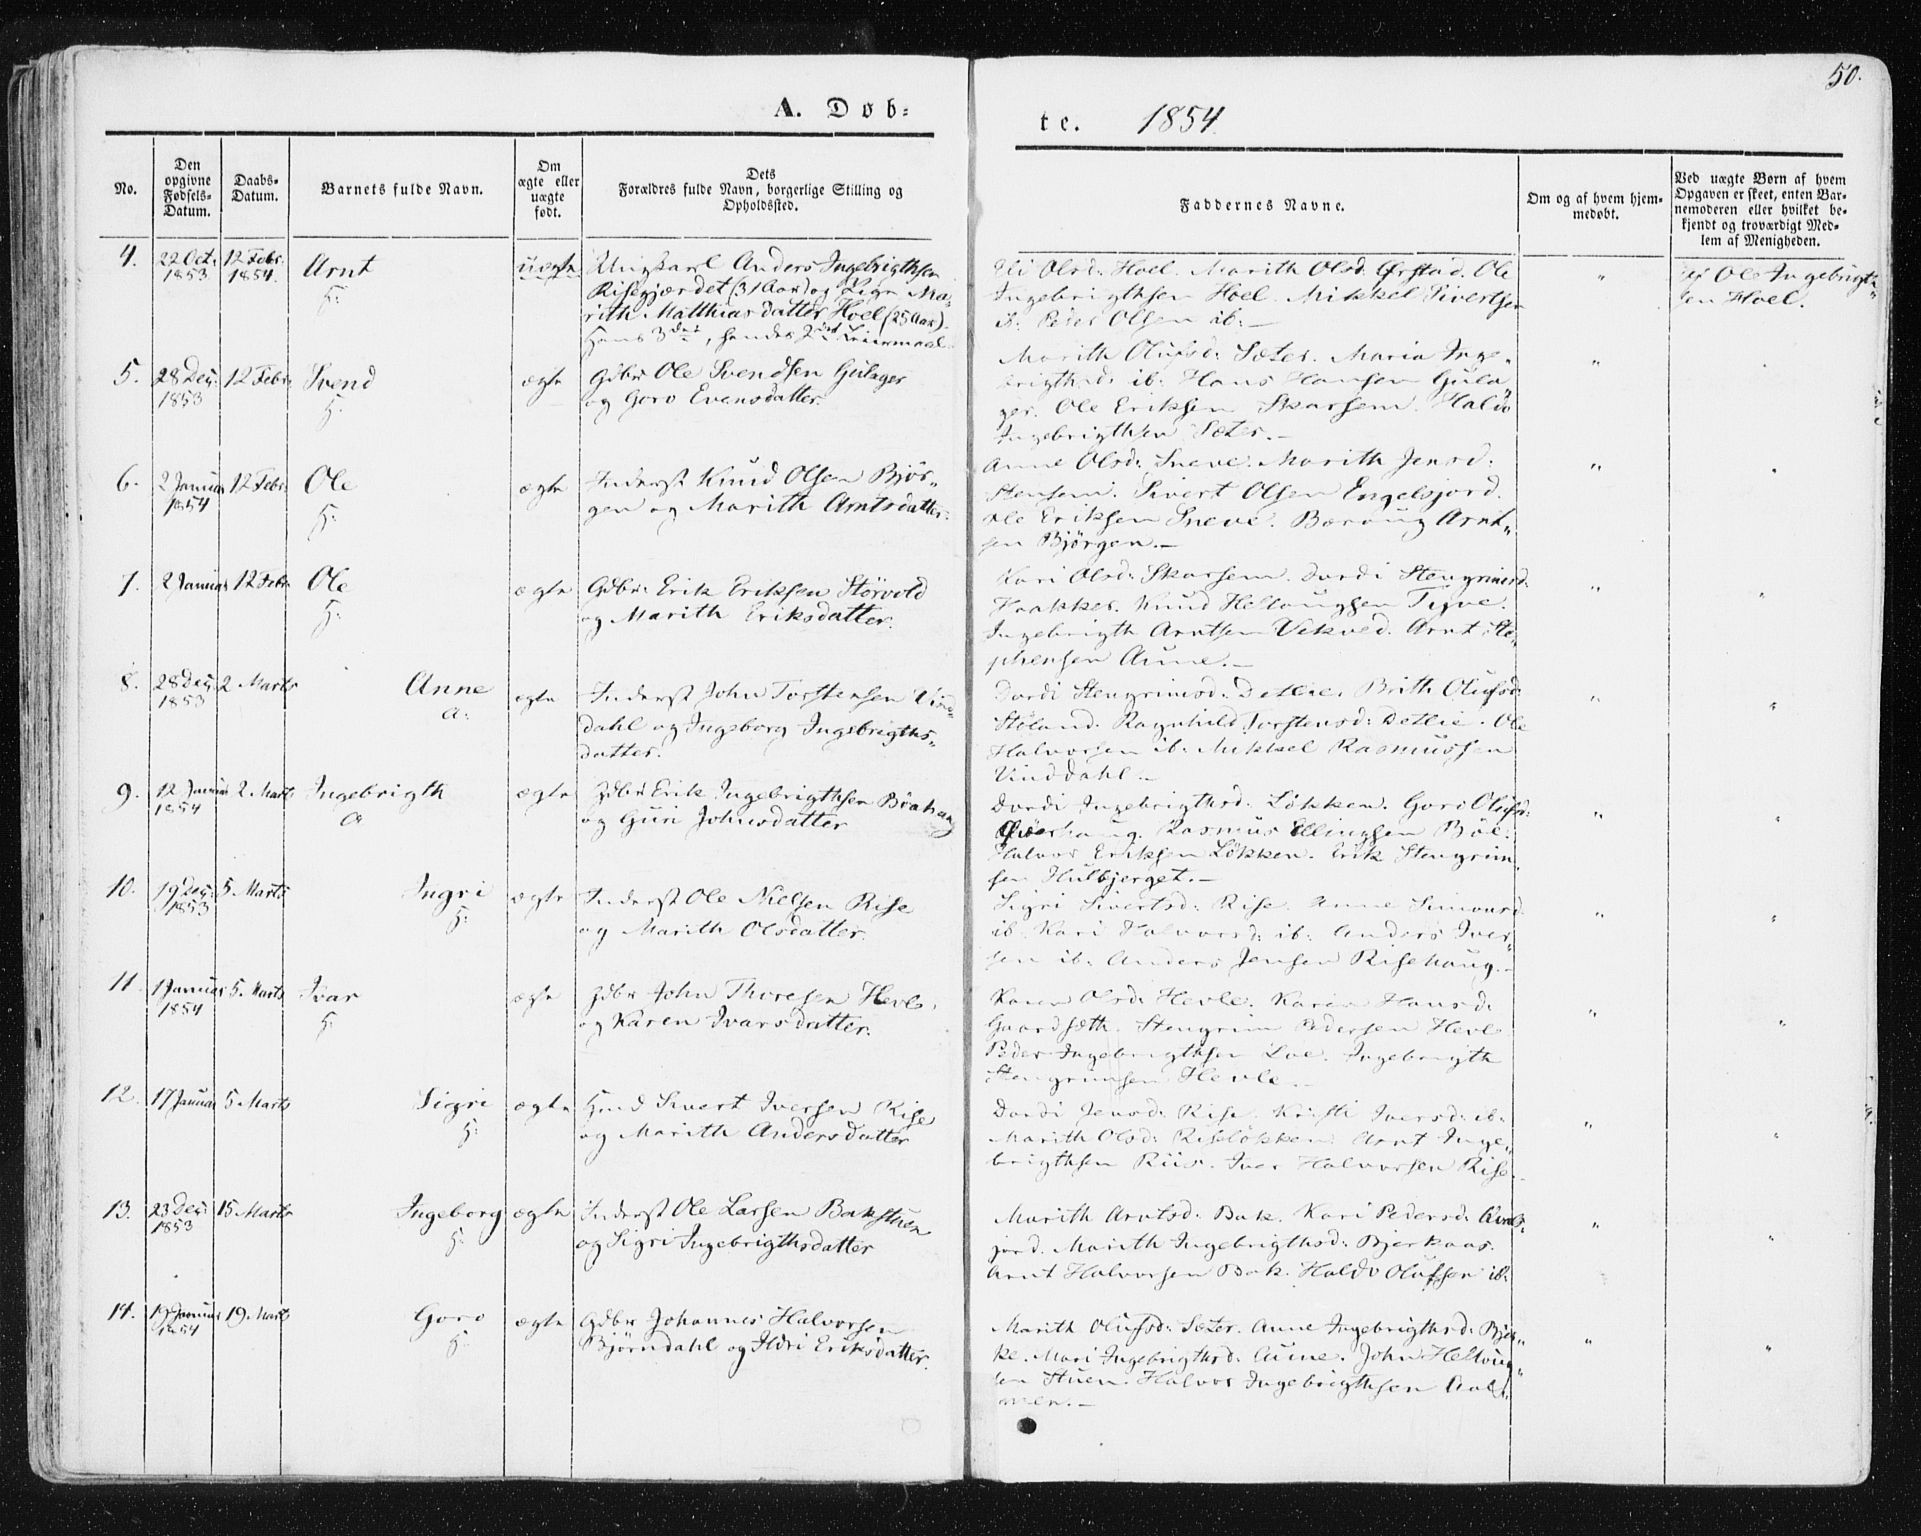 50.
A. Døb-
te. 1854
No.
Den opgivne Fødsels-Datum.
Daabs-Datum.
Barnets fulde Navn.
Om ægte eller uægte født.
Dets Forældres fulde Navn, borgerlige Stilling og Opholdssted.
Faddernes Navne.
Om og af hvem hjem-medøbt.
Ved uægte Børn af hvem Opgaven er skeet, enten Bar-nemoderen eller hvilket be-kjendt og troværdigt Med-lem af Menigheden.
4. 22 Oct: 12 Febr. Arnt uægte Ungkarl Anders Ingebrigthsen
1853 1854. H:
Risegjærdet (31 Aar) og Pigen Ma-
rith Matthiasdatter Hoel (25 Aar).
Hans 3die, hendes 2det Leiermaal.
Eli Olsd: Hoel. Marith Olsd. Ørstad. Ole
Ingebrigthsen Hoel. Mikkel Sivertsen
ib: Peder Olsen ib:
" Ole Ingebrigt-
sen Hoel.
5. 28 Dec: 12 Febr. Svend ægte Gdbr Ole Svendsen Gulager
1853 H: og Goro Evensdatter.
Marith Olufsd: Sæter. Maria Inge-
brigthsd: ib: Hans Hansen Gula-
ger. Ole Eriksen Skarsem. Haldo
Ingebrigthsen Sæter.
" "
6. 2 Januar 12 Febr. Ole ægte Inderst Knud Olsen Bjør-
1854 H: gen og Marith Arntsdatter.
Anne Olsd: Sneve. Marith Jensd:
Stensem. Sivert Olsen Engelsjord.
Ole Eriksen Sneve. Baroug Arnt-
sen Bjørgen.
" "
7. 2 Januar 12 Febr Ole ægte Gdbr: Erik Eriksen Störvold
H: og Marith Eriksdatter.
Kari Olsd: Skarsem. Dordi Stengrimsd:
Haakker. Knud Hellaugsen Tyve.
Ingebrigth Arntsen Vekved. Arnt Ste-
phensen Aune.
" "
8. 28 Dec: 2 Marts Anne ægte Inderst John Torstensen Vind-
1853 A: dahl og Ingeborg Ingebrigths-
datter.
Dordi Stengrimsd: Detlie. Brith Olufsd:
Stöland. Ragnhild Torstensd: Detlie. Ole
Halvorsen ib: Mikkel Rasmussen
Vinddahl.
" "
9. 12 Januar 2 Marts Ingebrigth ægte Gdbr Erik Ingebrigthsen Bräkaug
1854 A og Guri Johnsdatter
Dordi Ingebrigthsd. Lökken. Gori Olufsd:
Øverhaug. Rasmus Ellingsen Böe.
Halvor Eriksen Lökken. Erik Stengrim-
sen Hulbjerget.
" "
10. 19 Dec: 5. Marts Ingri ægte Inderst Ole Nielsen Rise
1853 H: og Marith Olsdatter.
Sigri Sivertsd: Rise. Anne Simonsd.
ib. Kari Halvorsd: ib: Anders Iver-
sen ib: Anders Jensen Risehaug.
" "
11. 1 Januar 5. Marts Ivar ægte Gdbr John Thoresen Hevle
1854 H: og Karen Ivarsdatter.
Karen Olsd: Hevle. Karen Hansd:
Gaardsæth. Stengrim Pedersen Hevle
Peder Ingebrigthsen Loe. Ingebrigth
Stengrimsen Hevle.
" "
12. 17 Januar 5 Marts Sigri ægte Hmd Sivert Iversen Rise
H: og Marith Andersdatter
Dordi Jensd: Rise. Kristi Iversd: ib:
Marith Olsd: Riselökken. Arnt Inge-
brigthsen Riis. Iver Halvorsen Rise.
" "
13. 23 Dec: 15 Marts Ingeborg ægte Inderst Ole Larsen Bakstuen
1853 H: og Sigri Ingebrigthsdatter
Marith Arntsd: Bak. Kari Pedersd:
jord. Marith Ingebrigthsd: Bjerkaas.
Arnt Halvorsen Bak. Haldo Olufsen ib:
" "
14. 19 Januar 19. Marts Goro ægte Gdbr Johannes Halvorsen
1854 H: Bjørndahl og Ildri Eriksdatter.
Marith Olufsd: Sæter. Anne Ingebrigthsd: Bjer-
ke. Mari Ingebrigthsd: Aune. John Hellaug-
sen Stuen. Halvor Ingebrigthsen Aal-
men.
" "